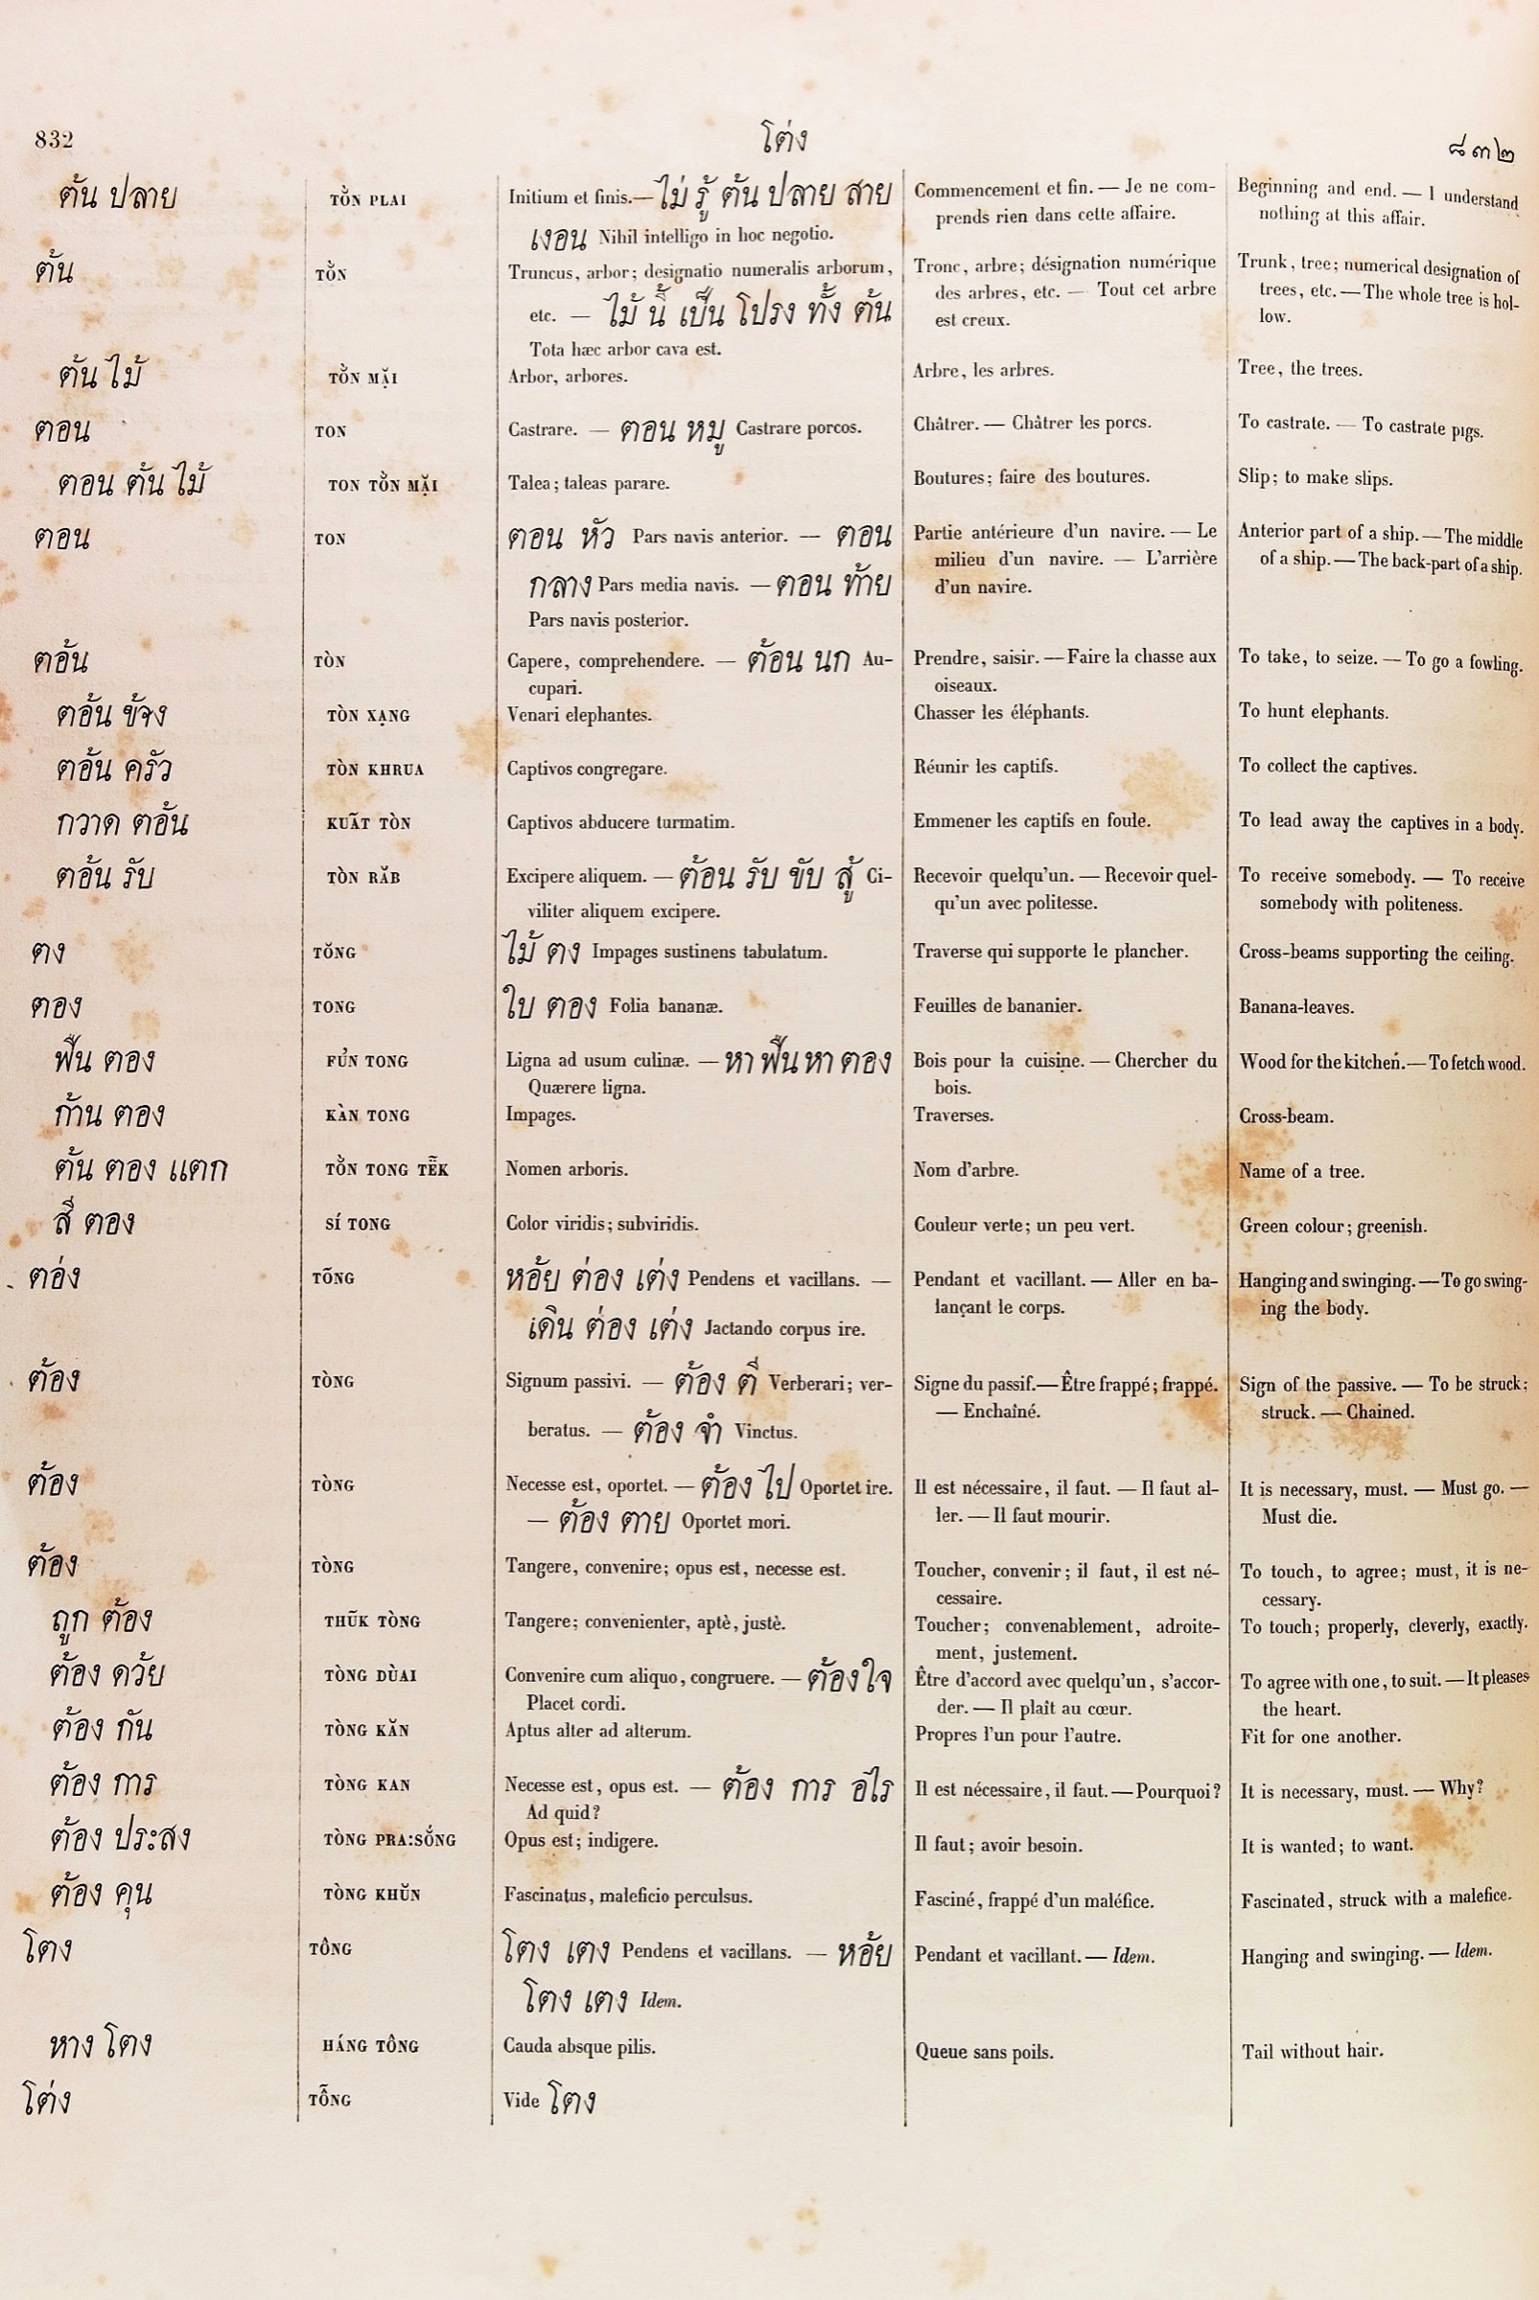 832 โต่ง ๘๓๒
ต้น ปลาย TỒ̆N PLAI Initium et finis.— ไม่ รู้ ต้น ปลาย สาย Commencement et fin. — Je ne com- Beginning and end. — I understand
เงอน Nihil intelligo in hoc negotio. prends rien dans cette affaire. nothing at this affair.
ต้น TỒ̆N Truncus, arbor; designatio numeralis arborum, Tronc, arbre; désignation numérique Trunk, tree; numerical designation of
etc. — ไม้ นี้ เป็น โปรง ทั้ง ต้น des arbres, etc. — Tout cet arbre trees, etc. — The whole tree is hol-
Tota hæc arbor cava est. est creux. low.
ต้น ไม้ TỒ̆N MẶI Arbor, arbores. Arbre, les arbres. Tree, the trees.
ตอน TON Castrare. — ตอน หมู Castrare porcos. Châtrer. — Châtrer les porcs. To castrate. — To castrate pigs.
ตอน ต้น ไม้ TON TỒ̆N MẶI Talea; taleas parare. Boutures; faire des boutures. Slip; to make slips.
ตอน TON ตอน หัว Pars navis anterior. — ตอน Partie antérieure d'un navire. — Le Anterior part of a ship. — The middle
กลาง Pars media navis. — ตอน ท้าย milieu d'un navire. — L'arrière of a ship. — The back-part of a ship.
Pars navis posterior. d'un navire.
ตอ้น TÒN Capere, comprehendere. — ต้อน นก Au- Prendre, saisir. — Faire la chasse aux To take, to seize. — To go a fowling.
cupari. oiseaux.
ตอ้น ข้จง TÒN XẠNG Venari elephantes. Chasser les éléphants. To hunt elephants.
ตอ้น ครัว TÒN KHRUA Captivos congregare. Réunir les captifs. To collect the captives.
กวาด ตอ้น KUÃT TÒN Captivos abducere turmatim. Emmener les captifs en foule. To lead away the captives in a body.
ตอ้น รับ TÒN RĂB Excipere aliquem. — ต้อน รับ ขับ สู้ Ci- Recevoir quelqu'un. — Recevoir quel- To receive somebody. — To receive
viliter aliquem excipere. qu'un avec politesse. somebody with politeness.
ตง TŎNG ไม้ ตง Impages sustinens tabulatum. Traverse qui supporte le plancher. Cross-beams supporting the ceiling.
ตอง TONG ใบ ตอง Folia bananæ. Feuilles de bananier. Banana-leaves.
ฟืน ตอง FỦN TONG Ligna ad usum culinæ. — หา ฟืน หา ตอง Bois pour la cuisine. — Chercher du Wood for the kitchen. — To fetch wood.
Quærere ligna. bois.
ก้าน ตอง KÀN TONG Impages. Traverses. Cross-beam.
ต้น ตอง แตก TỒ̆N TONG TẼ̆K Nomen arboris. Nom d'arbre. Name of a tree.
สี ตอง SÍ TONG Color viridis; subviridis. Couleur verte; un peu vert. Green colour; greenish.
ตอ่ง TÕNG หอ้ย ต่อง เต่ง Pendens et vacillans. — Pendant et vacillant. — Aller en ba- Hanging and swinging. — To go swing-
เดิน ต่อง เต่ง Jactando corpus ire. lançant le corps. ing the body.
ต้อง TÒNG Signum passivi. — ต้อง ตี Verberari; ver- Signe du passif. — Être frappé; frappé. Sign of the passive. — To be struck;
beratus. — ต้อง จำ Vinctus. — Enchaîné. struck. — Chained.
ต้อง TÒNG Necesse est, oportet. — ต้อง ไป Oportet ire. Il est nécessaire, il faut. — Il faut al- It is necessary, must. — Must go. —
— ต้อง ตาย Oportet mori. ler. — Il faut mourir. Must die.
ต้อง TÒNG Tangere, convenire; opus est, necesse est. Toucher, convenir; il faut, il est né- To touch, to agree; must, it is ne-
cessaire. cessary.
ถูก ต้อง THŨK TÒNG Tangere; convenienter, aptè, justè. Toucher; convenablement, adroite- To touch; properly, cleverly, exactly.
ment, justement.
ต้อง ดว้ย TÒNG DÙAI Convenire cum aliquo, congruere. — ต้อง ใจ Être d'accord avec quelqu'un, s'accor- To agree with one, to suit. — It pleases
Placet cordi. der. — Il plaît au cœur. the heart.
ต้อง กัน TÒNG KĂN Aptus alter ad alterum. Propres l'un pour l'autre. Fit for one another.
ต้อง การ TÒNG KAN Necesse est, opus est. — ต้อง การ อไร Il est nécessaire, il faut. — Pourquoi? It is necessary, must. — Why?
Ad quid?
ต้อง ประสง TÒNG PRA:SỐNG Opus est; indigere. Il faut; avoir besoin. It is wanted; to want.
ต้อง คุน TÒNG KHŬN Fascinatus, maleficio perculsus. Fasciné, frappé d'un maléfice. Fascinated, struck with a malefice.
โตง TÔNG โตง เตง Pendens et vacillans. — หอ้ย Pendant et vacillant. — Idem. Hanging and swinging. — Idem.
โตง เตง Idem.
หาง โตง HÁNG TÔNG Cauda absque pilis. Queue sans poils. Tail without hair.
โต่ง TỖNG Vide โตง